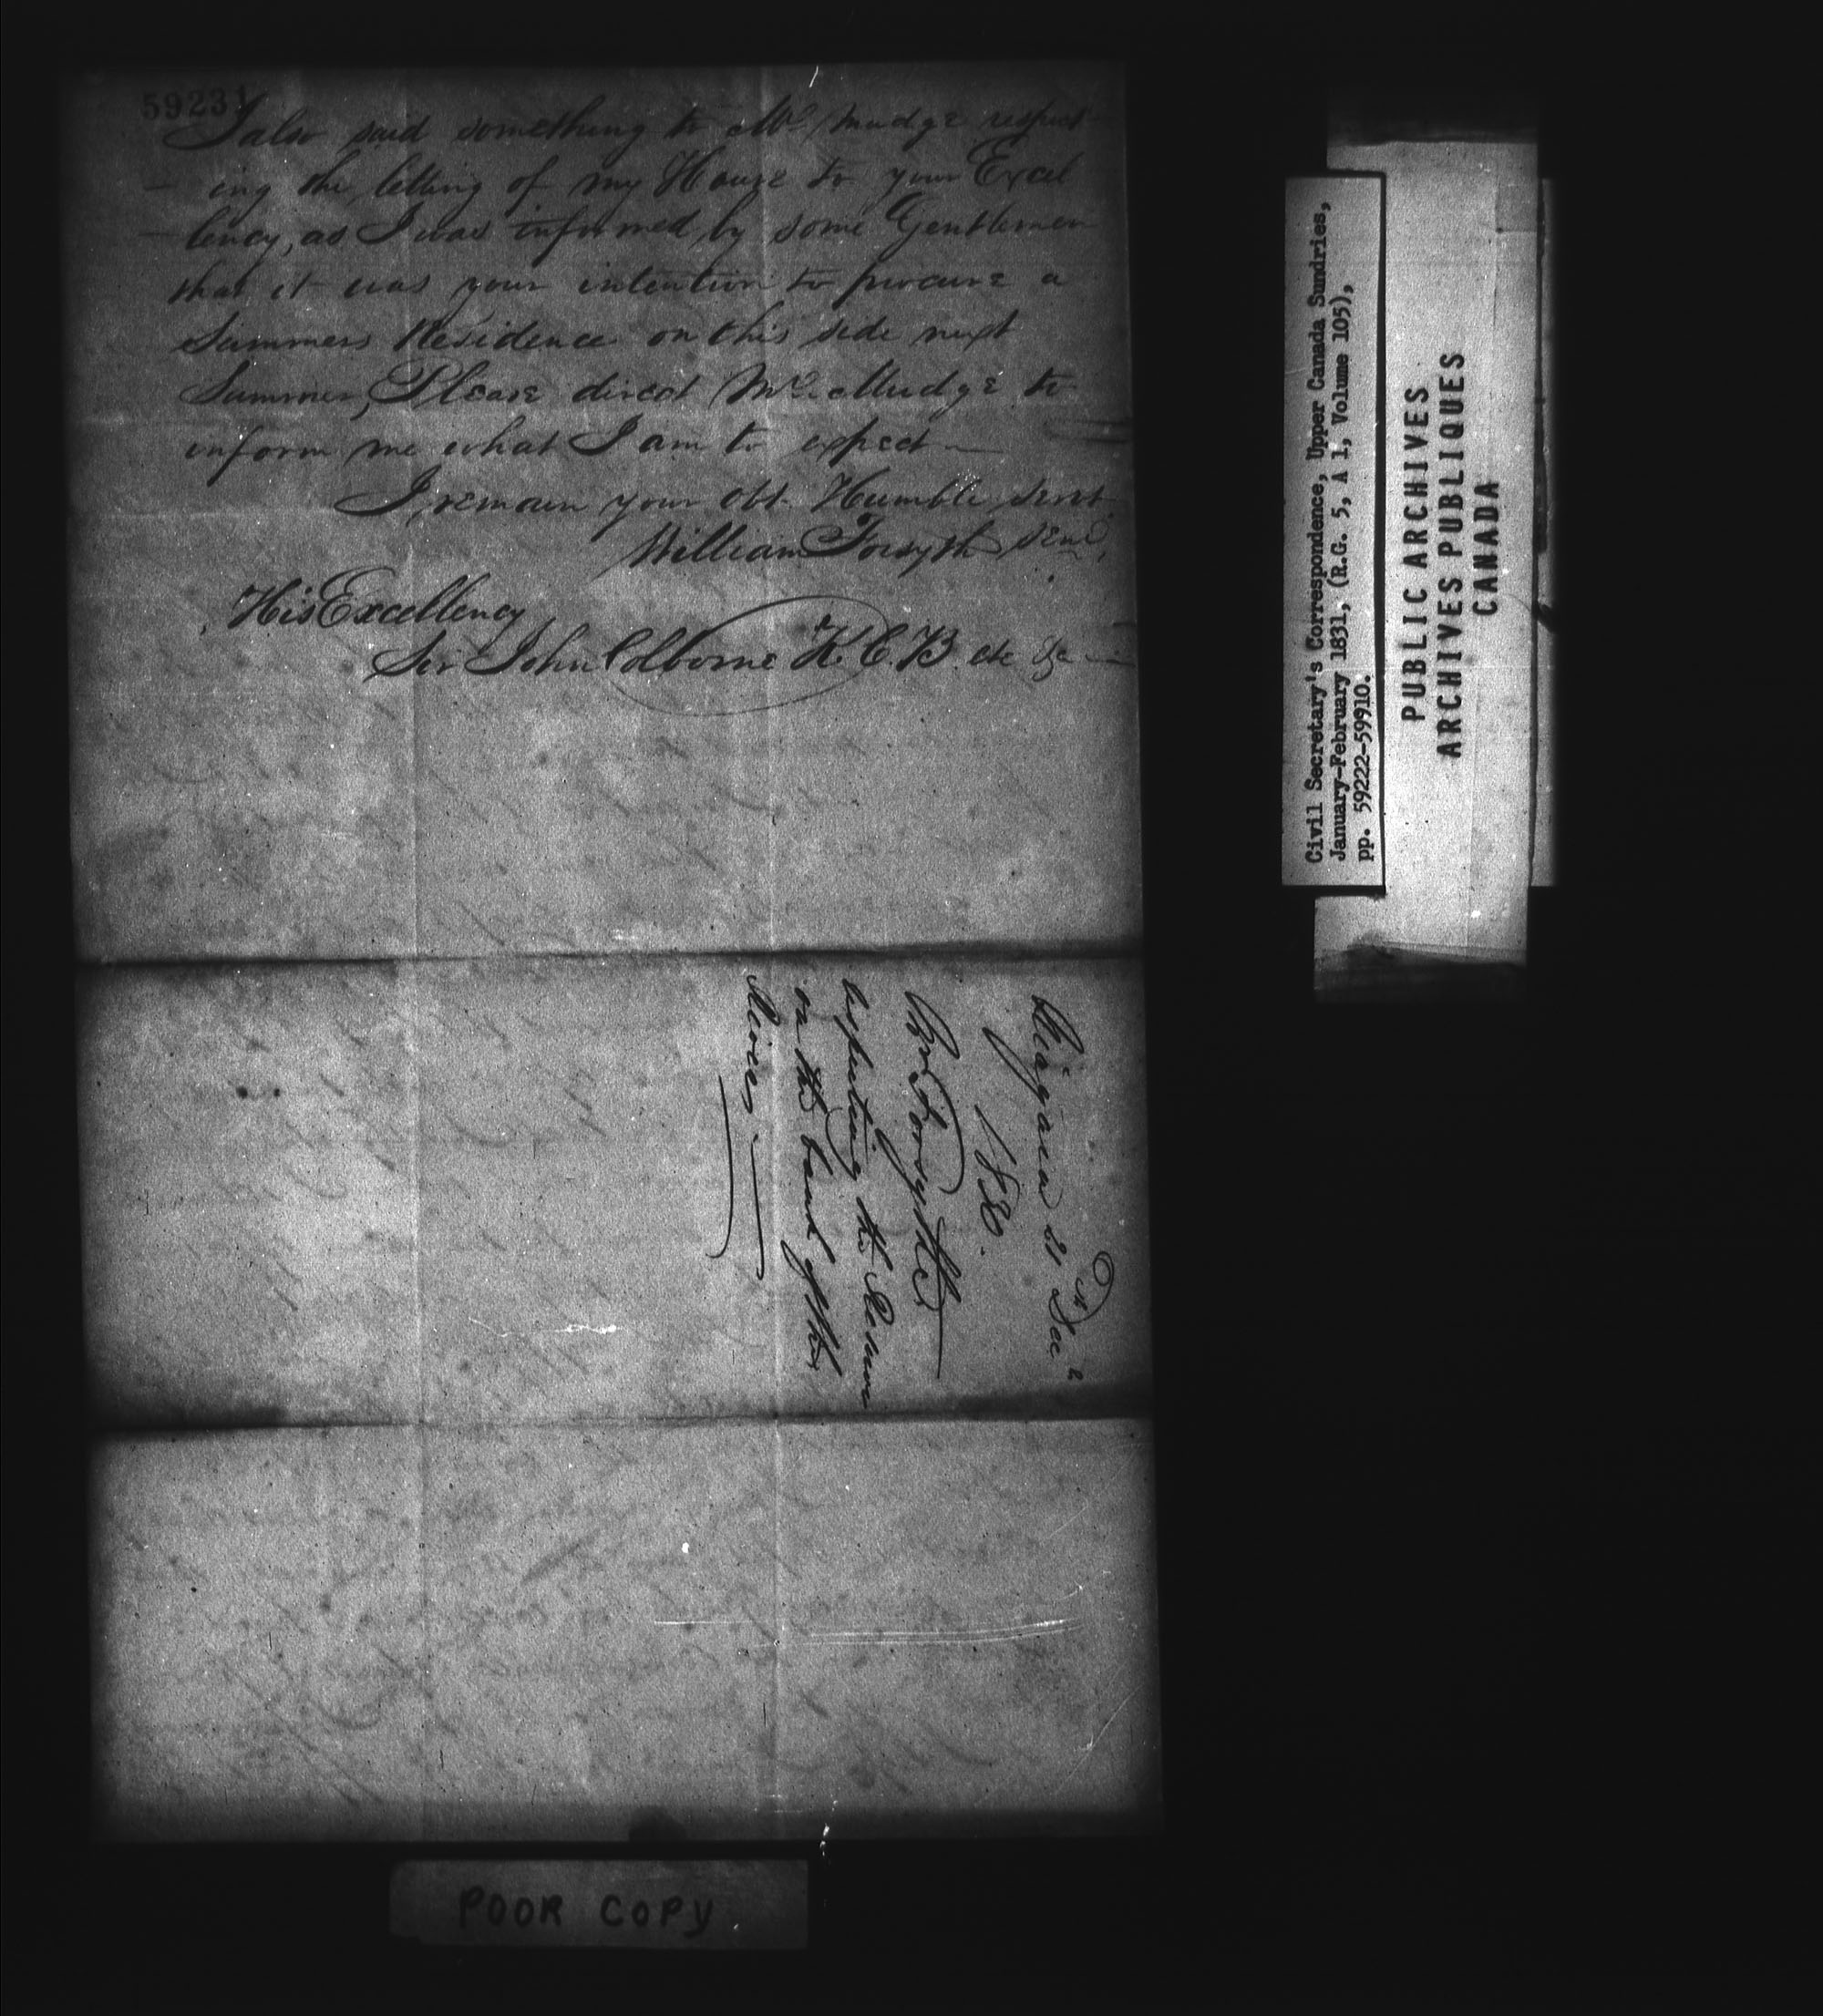 59231
I also said something to Mr. Mudge respect-
- ing the letting of my House to your Excel
- lency, as I was informed by some Gentlemen
that it was your intention to procure a
Summers Residence on this side next
Summer, Please direct Mr. Mudge to
inform me what I am to expect —
I remain your Obt. Humble Servt.
William Forsyth Senr.
His Excellency
Sir John Colborne K.C.B. etc &c —
Niagara 21st Decr
1830.
Wm Forsyth
respecting the Reserve
on the bank of the
River —
Civil Secretary's Correspondence, Upper Canada Sundries,
January-February 1831, (R.G. 5, A 1, Volume 105),
pp. 59222-59910.
PUBLIC ARCHIVES
ARCHIVES PUBLIQUES
CANADA
POOR COPY.